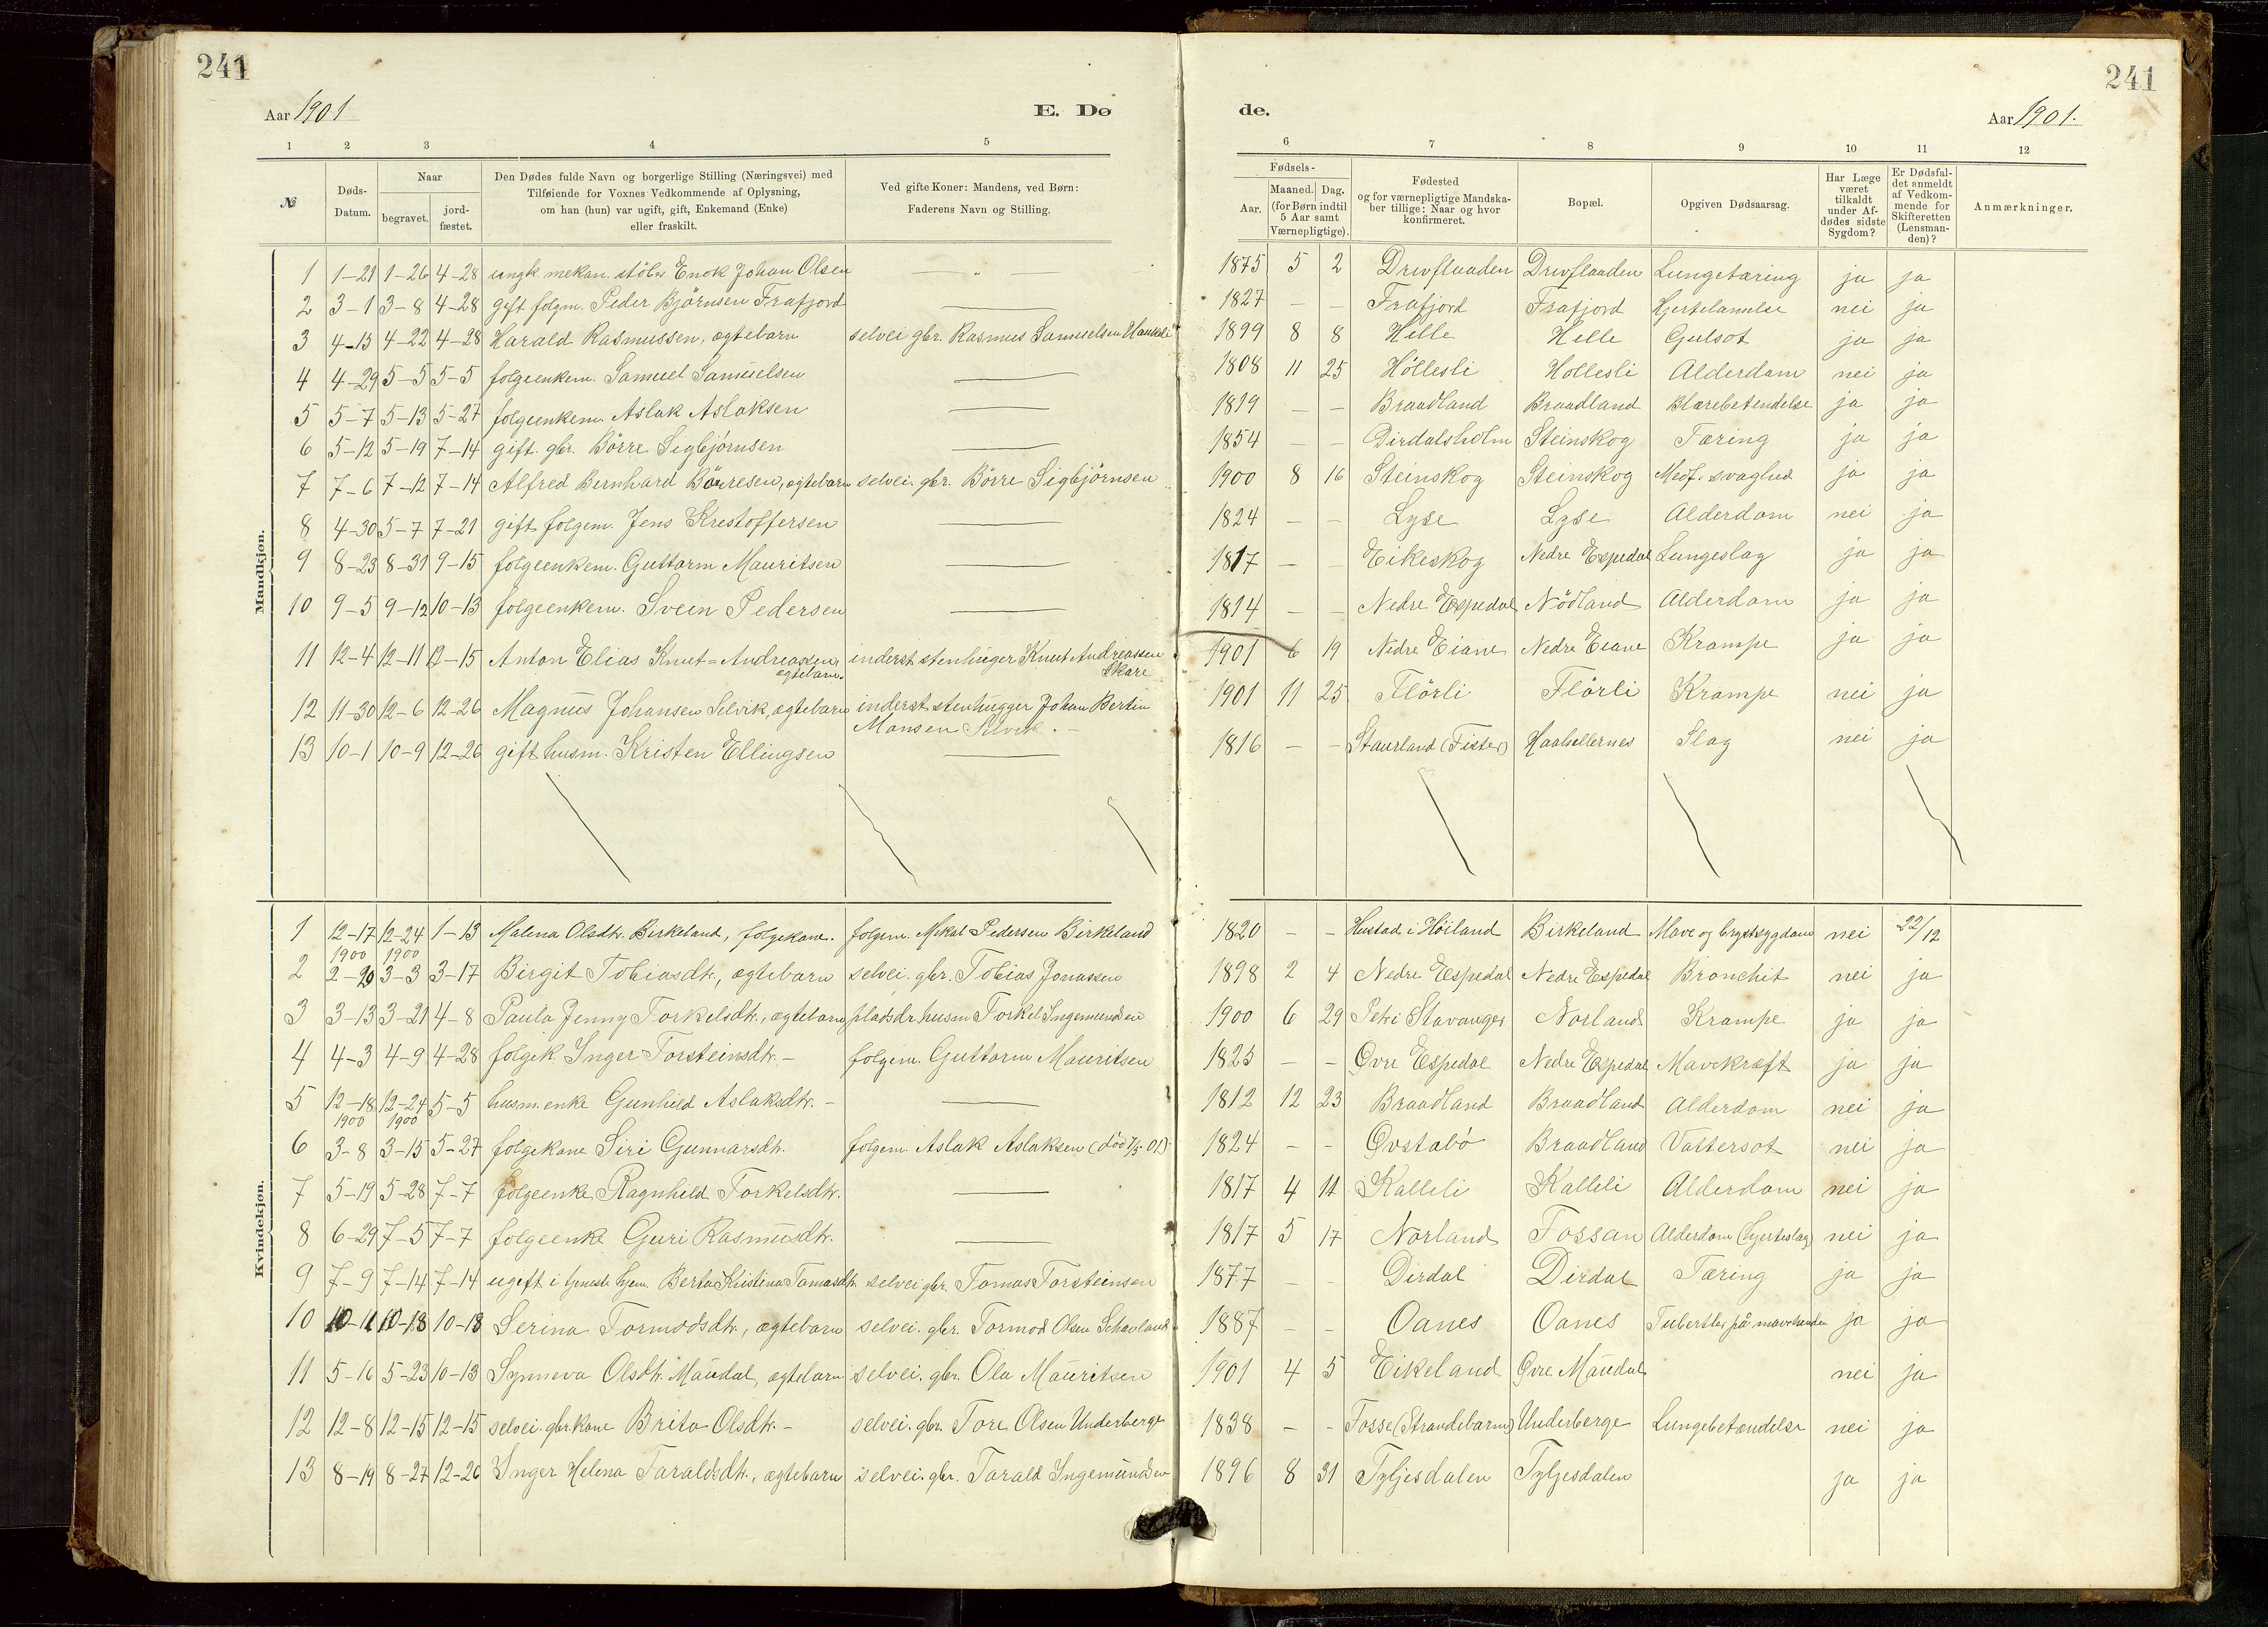 241
241
Aar 1901
E. Dø
de.
Aar 1901.
1 2 3 4 5 6 7 8 9 10 11 12
№
Døds-Datum.
Naar
begravet.
jord-fæstet.
Den Dødes fulde Navn og borgerlige Stilling (Næringsvei) med
Tilføiende for Voxnes Vedkommende af Oplysning,
om han (hun) var ugift, gift, Enkemand (Enke)
eller fraskilt.
Ved gifte Koner: Mandens, ved Børn:
Faderens Navn og Stilling.
Fødsels-
Aar.
Maaned. Dag.
(for Børn indtil
5 Aar samt
Værnepligtige).
Fødested
og for værnepligtige Mandska-
ber tillige: Naar og hvor
konfirmeret.
Bopæl.
Opgiven Dødsaarsag.
Har Læge
været
tilkaldt
under Af-
dødes sidste
Sygdom?
Er Dødsfal-
det anmeldt
af Vedkom-
mende for
Skifteretten
(Lensman-
den)?
Anmærkninger.
Mandkjøn.
1 1-21 1-26 4-28 ungk. mekan. Enok Johan Olsen — " — 1875 5 2 Drivflaaden Drivflaaden Lungetæring ja ja
2 3-1 3-8 4-28 gift folgm. Peder Björnsen Frafjord — 1827 — — Frafjord Frafjord Hjertelamelse nei ja
3 4-15 4-22 4-28 Harald Rasmussen, ægtebarn selvei gbr. Rasmus Samuelsen 1899 8 8 Helle Helle Gulsot ja ja
4 4-29 5-5 5-5 folgeenkem. Samuel Samuelsen — 1808 11 25 Höllesli Hollesli Alderdom nei ja
5 5-7 5-13 5-27 folgeenkem. Aslak Aslaksen — 1819 — — Braadland Braadland Blærebetendelse ja ja
6 5-12 5-19 7-14 gift. gbr. Börre Sigbjörnsen — 1854 — — Dirdalsholm Steinskog Tæring ja ja
7 7-6 7-12 7-14 Alfred Bernhard Börresen, ægtebarn selvei. gbr. Börre Sigbjörnsen 1900 8 16 Steinskog Steinskog Medf. svaghed ja ja
8 4-30 5-7 7-21 gift folgem. Jens Krestoffersen — 1824 — — Lyse Lyse Alderdom nei ja
9 8-23 8-31 9-15 folgeenkem. Guttorm Mauritsen — 1817 — — Eikeskog Nedre Espedal Lungeslag ja ja
10 9-5 9-12 10-13 folgeenkem. Svein Pedersen — 1814 — — Nedre Espedal Nödland Alderdom ja ja
11 12-4 12-11 12-15 Anton Elias Knut=Andreassen inderst stenhuger Knut Andreassen 1901 6 19 Nedre Eiane Nedre Eiane Krampe ja ja
ægtebarn. Skare
12 11-30 12-6 12-26 Magnus Johansen Selvik, ægtebarn inderst stenhugger Johan Bertin 1901 11 25 Flörli Flörli Krampe nei ja
Monsen Selvik. —
13 10-1 10-9 12-26 gift husm. Kristen Ellingsen — 1816 — — Staurland (Fister) Haahellernes Slag nei ja
Kvindekjøn.
1 12-17 12-24 1-13 Malena Olsdtr. Birkeland, folgekone. folgem. Mikal Pedersen Birkeland 1820 — — Hustad i Höiland Birkeland Mave og brystsygdom nei 22/12
1900 1900
2 2-20 3-3 3-17 Birgit Tobiasdtr., ægtebarn selvei. gbr. Tobias Jonassen 1898 2 4 Nedre Espedal Nedre Espedal Bronchit nei ja
3 3-13 3-21 4-8 Paula Jenny Torkelsdtr., ægtebarn pladsdr. husm Torkel Ingemundsen 1900 6 29 Petri Stavanger Norland Krampe ja ja
4 4-3 4-9 4-28 folgek Inger Torsteinsdtr. — folgem. Guttorm Mauritsen 1825 — — Øvre Espedal Nedre Espedal Mavekræft ja ja
5 12-18 12-24 5-5 husm. enke Gunhild Aslaksdtr. — — 1812 12 23 Braadland Braadland Alderdom nei ja
1900 1900
6 3-8 3-15 5-27 folgekone Siri Gunnarsdtr. folgem. Aslak Aslaksen (död 7/5 01) 1824 — — Øvstabö Braadland Vattersot nei ja
7 5-19 5-28 7-7 folgeenke Ragnhild Torkelsdtr. — 1817 4 11 Kalleli Kalleli Alderdom nei ja
8 6-29 7-5 7-7 folgeenke Guri Rasmusdtr. — 1817 5 17 Norland Fossan Alderdom (hjerteslag) nei ja
9 7-9 7-14 7-14 ugift i tjeneste hjem. Berta Kristina Tomasdtr. selvei gbr. Tomas Torsteinsen 1877 — — Dirdal Dirdal Tæring ja ja
10 10-11 10-18 10-18 Serina Tormodsdtr., ægtebarn selvei. gbr. Tormod Olsen Schavland 1887 — — Oanes Oanes Tuberkler på mavehinden ja ja
11 5-16 5-23 10-13 Synneva Olsdtr. Maudal, ægtebarn selvei. gbr. Ola Mauritsen 1901 4 5 Eikeland Øvre Maudal nei ja
12 12-8 12-15 12-15 selvei. gbr.kone Brita Olsdtr. — selvei. gbr. Tore Olsen Underberge 1838 — — Fosse (Strandebarm) Underberge Lungebetændelse nei ja
13 8-19 8-27 12-26 Inger Helena Taraldsdtr., ægtebarn selvei. gbr. Tarald Ingemundsen 1896 8 31 Tyljesdalen Tyljesdalen ja ja